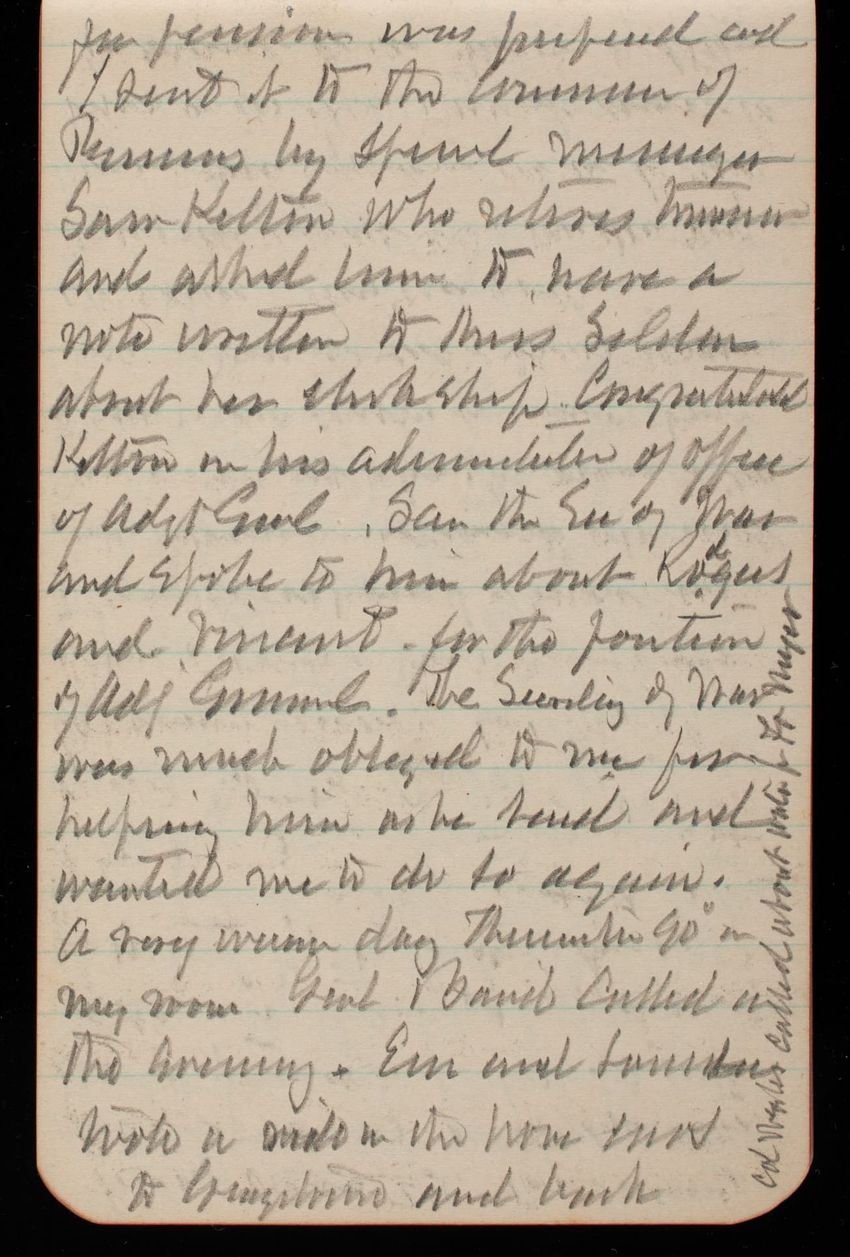 for pension was prepared and
I sent it to the Commr of
Pensions by Special messenger
Saw Kelton who retires
and asked him to have a
note written to Miss
about her clerkship. Congratulated
Kelton on his of office
of Adgt Genl. Saw the Sec of War
and spoke to him about
and Vincent for the position
of Adj General. The Secretary of War
was much obliged to me for
helping him as he said and
wanted me to do so again.
A very warm day Thermometer 90° in
my room Genl Baird called in
the evening. Em and
took a ride in the horse cars
to Georgetown and back
Col called about